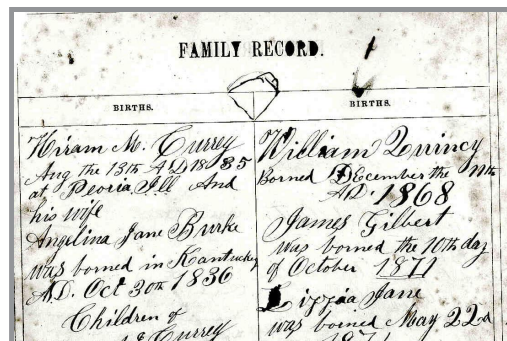 FAMILY RECORD.
BIRTHS.
Hiram M. Currey
Aug the 13th AD 1835
at Peoria Ill And
his wife
Angelina Jane Burke
was borned in Kantuckey
A.D. Oct 30th 1836
Children of
Currey
BIRTHS.
William Quincy
Borned December the
AD. 1868
James Gilbert
was borned the 10th day
of October 1871
Lizzia Jane
was borned May 22d